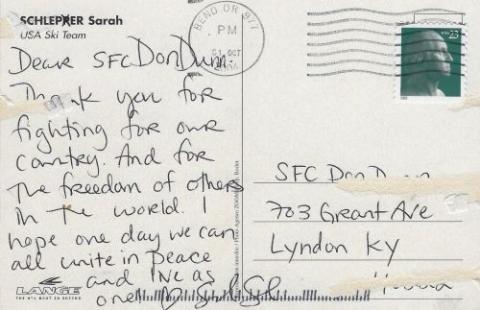 SCHLEPER Sarah
USA Ski Team
Dear SFC Don Dunn:
Thank you for
fighting for our
country. And for
the freedom of others
in the world. I
hope one day we can
all unite in peace
and live as
one!
LANGE
BEND OR 977
PM
OCT
23
SFC Don D
703 Grant Ave
Lyndon Ky